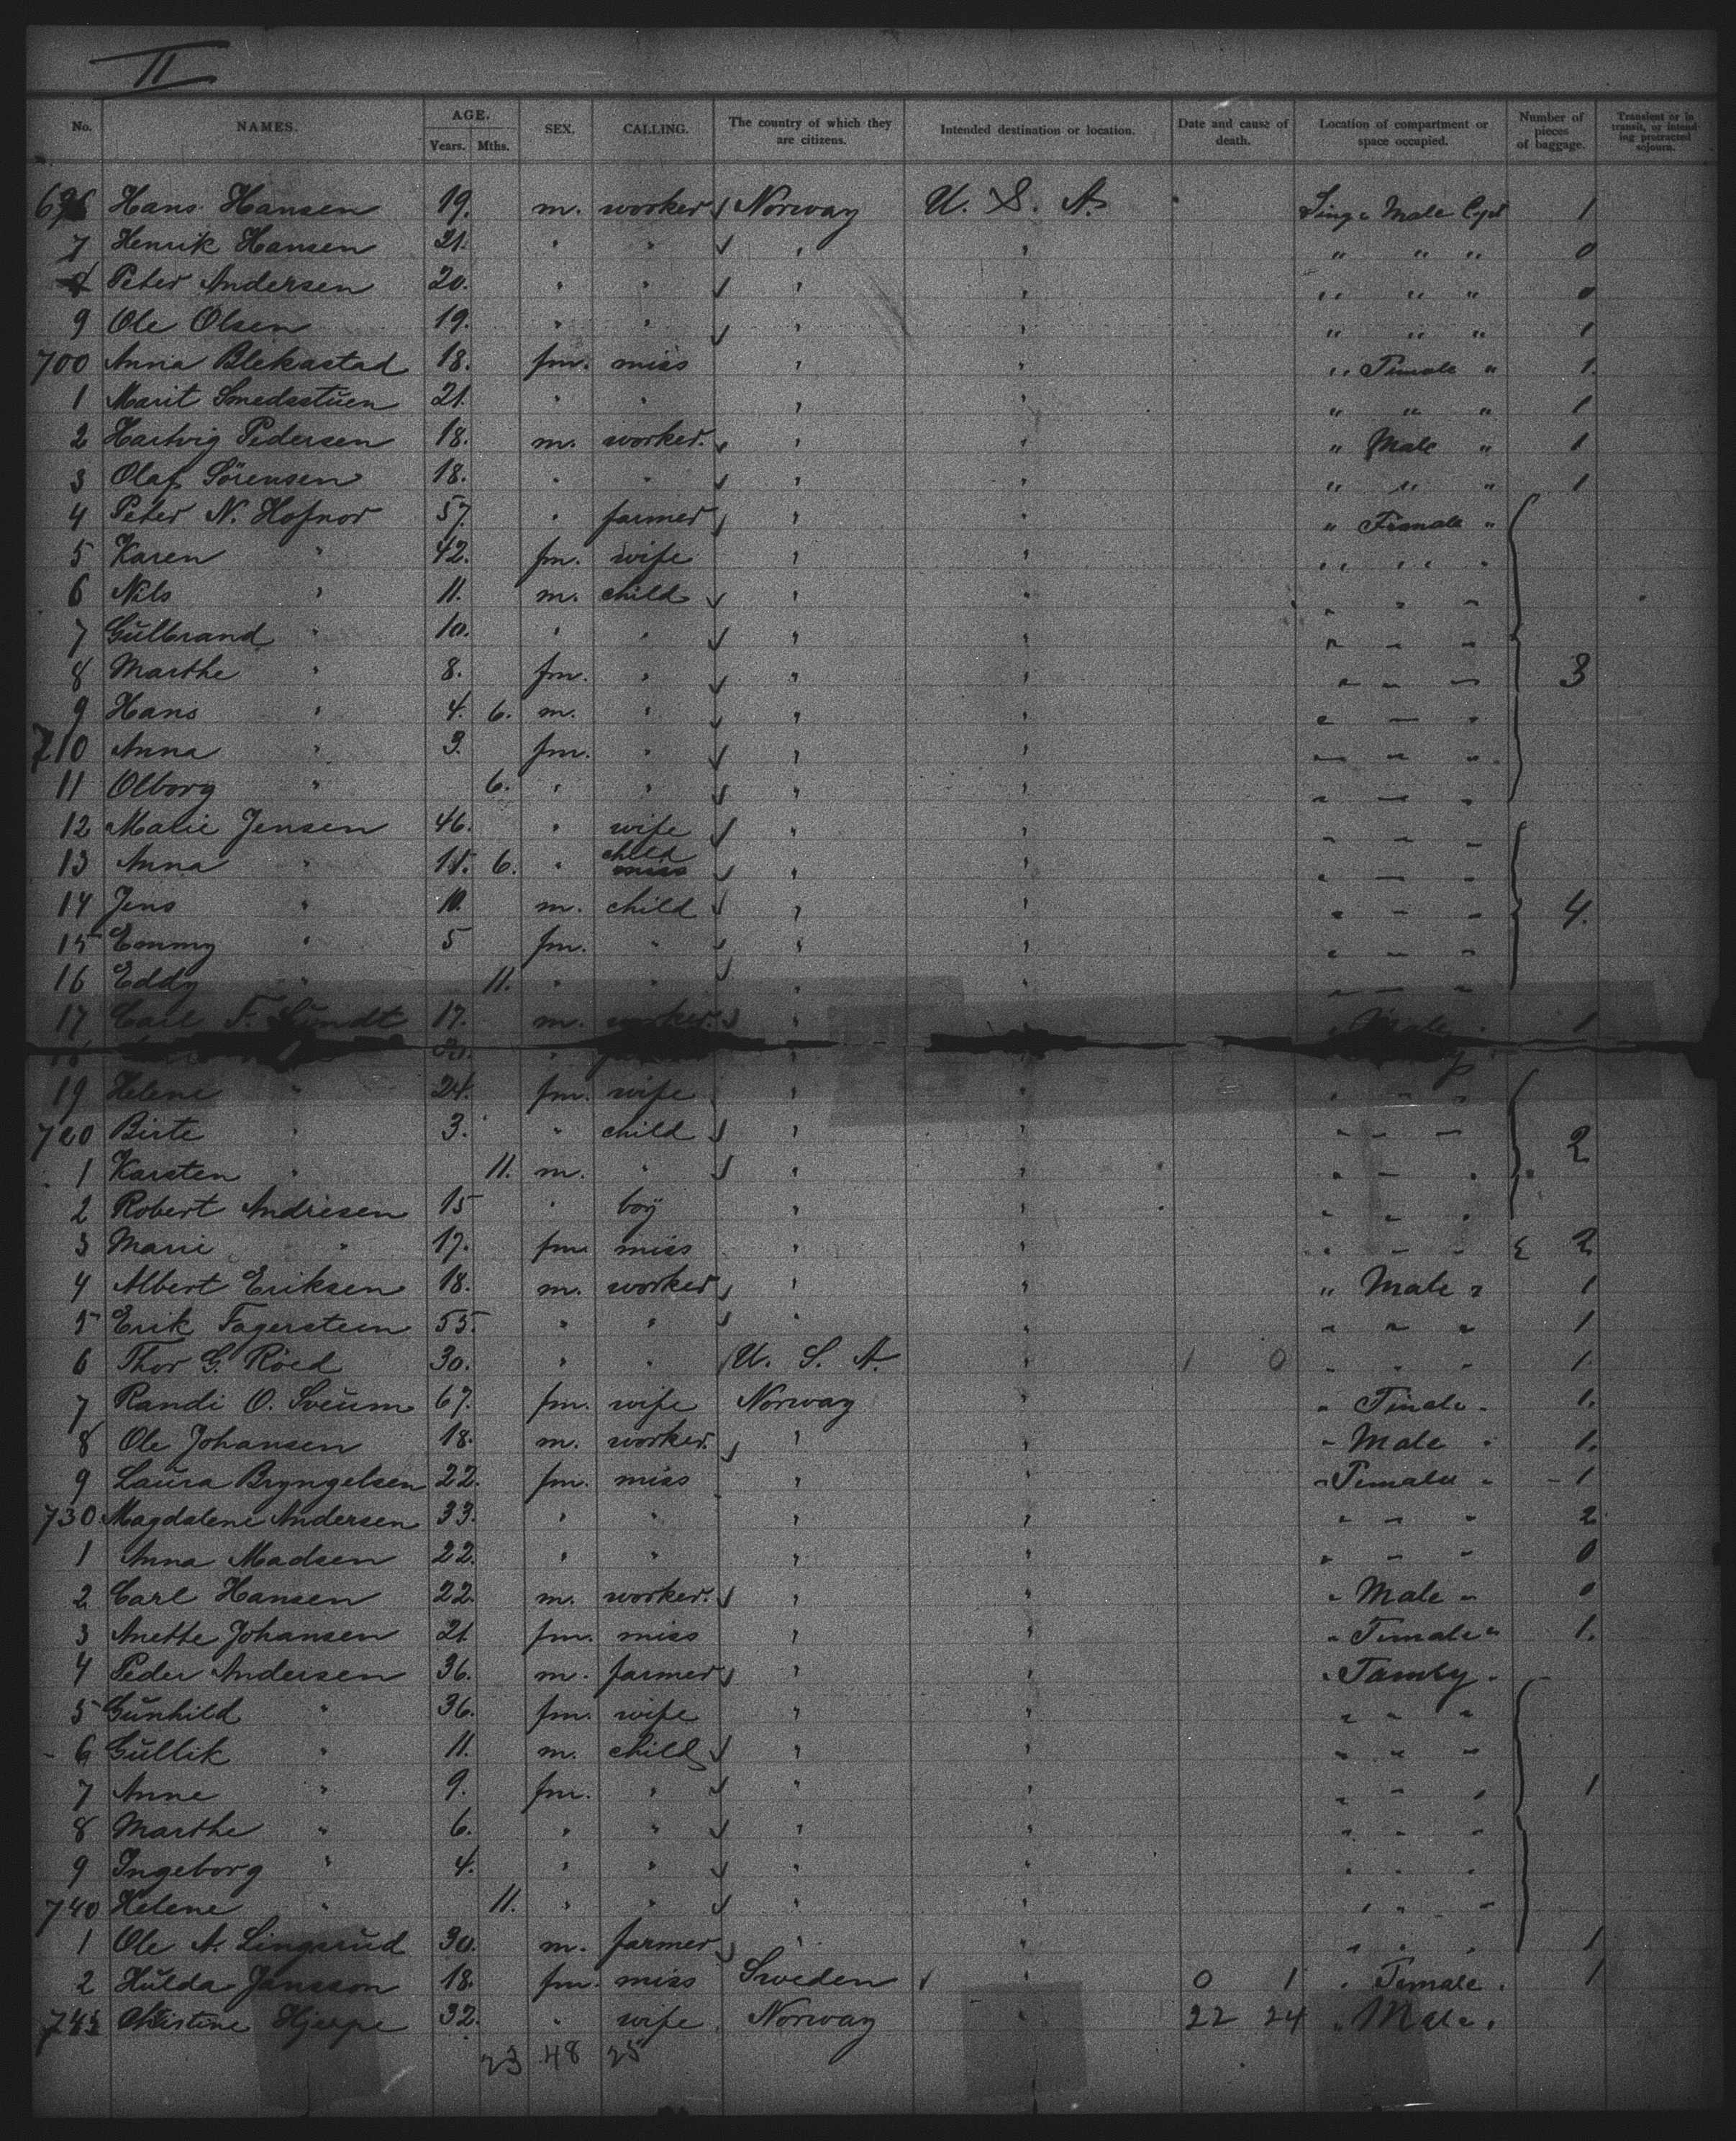 II
No. NAMES. AGE. Years. Mths. SEX. CALLING. The country of which they are citizens. Intended destination or location. Date and cause of death. Location of compartment or space occupied. Number of pieces of baggage. Transient or in transit, or intending protracted sojourn.
696 Hans Hansen 19. m. worker Norway U. S. A. Male 1
7 Henrik Hansen 21. " " " " " " " 0
8 Peter Andersen 20. " " " " " " " 0
9 Ole Olsen 19. " " " " " " " 1
700 Anna Blekastad 18. fm. miss " " " Female " 1.
1 Marit Smedsstuen 21. " " " " " " " 1
2 Hartvig Pedersen 18. m. worker. " " " Male " 1
3 Olaf Sörensen 18. " " " " " " " 1
4 Peter N. Hofnor 57. " farmer " " " Female "
5 Karen " 42. fm. wife " " " " "
6 Nils " 11. m. child " " " " "
7 Gulbrand " 10. " " " " " " "
8 Marthe " 8. fm. " " " " " " 3
9 Hans " 4. 6. m. " " " " " "
710 Anna " 3. fm. " " " " " "
11 Olborg " 6. " " " " " " "
12 Malie Jensen 46. " wife " " " " "
13 Anna " 11. 6. " child miss " " " " "
14 Jens " 10. m. child " " " " " 4.
15 Emmy " 5 fm. " " " " " "
16 Eddy " 11. " " " " " " "
17 Carl F. Sundt 17. m. worker. " " " Male " 1
19 Helene " 24. fm. wife " " " " "
720 Birte " 3. " child " " " " " 2
1 Karsten " 11. m. " " " " " "
2 Robert Andresen 15 " boy " " " " "
3 Marie " 17. fm. miss " " " " " 2
4 Albert Eriksen 18. m. worker " " " Male " 1
5 Erik Fagersteen 55. " " " " " " " 1
6 Thor G. Röed 30. " " U. S. A. " 1 0 " " " 1.
7 Randi O. Sveum 67. fm. wife Norway " " Female " 1.
8 Ole Johansen 18. m. worker. " " " Male " 1.
9 Laura Bryngelsen 22. fm. miss " " " Female " 1
730 Magdalene Andersen 33. " " " " " " " 2
1 Anna Madsen 22. " " " " " " " 0
2 Carl Hansen 22. m. worker. " " " Male " 0
3 Anette Johansen 21 fm. miss " " " Female " 1.
4 Peder Andersen 36. m. farmer " " " Family "
5 Gunhild " 36. fm. wife " " " " "
6 Gullik " 11. m. child " " " " "
7 Anne " 9. fm. " " " " " " 1
8 Marthe " 6. " " " " " " "
9 Ingeborg " 4. " " " " " " "
740 Helene " 11. " " " " " " "
1 Ole A. Lingsrud 30. m. farmer " " " " " 1
2 Hulda Jansson 18. fm. miss Sweden " 0 1 " Female " 1
743 Christine Hjerpe 32. " wife Norway " 22 24 " Male "
23 48 25